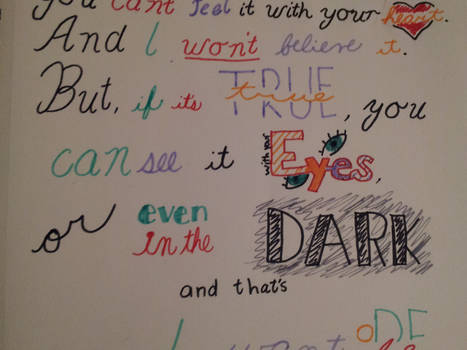 you can't feel it with your heart.
And I won't believe it.
But, if it's TRUE true, you
can see it with your Eyes,
or even in the DARK
and that's
I want to BE